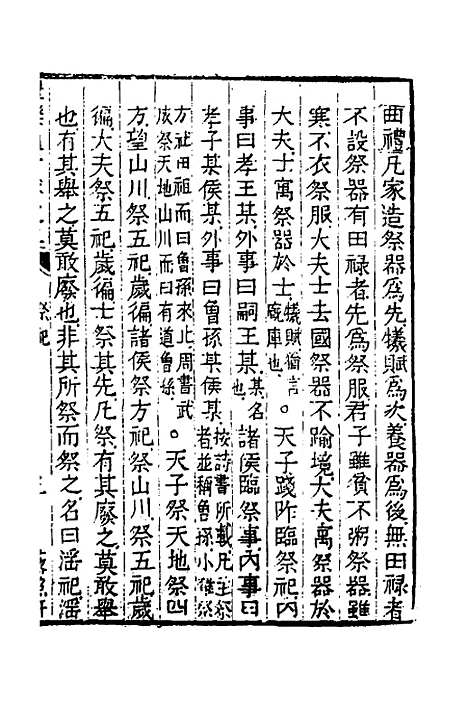 曲禮凡家造祭器爲先犧賦爲次養器爲後無田祿者
不設祭器有田祿者先爲祭服君子雖貧不粥祭器雖
寒不衣祭服大夫士去國祭器不踰境大夫寓祭器於
大夫士寓祭器於士犧賦猶言廐庫也○天子踐阼臨祭祀內
事曰孝王某外事曰嗣王某某名也諸侯臨祭事內事曰
孝子某侯某外事曰曾孫某侯某按詩書所載凡主祭者並稱曾孫小雅祭
方社田祖而曰曾孫來止周書武成祭天地山川而曰有道曾孫○天子祭天地祭四
方望山川祭五祀歲徧諸侯祭方祀祭山川祭五祀歲
徧大夫祭五祀歲徧士祭其先凡祭有其廢之莫敢舉
也有其舉之莫敢廢也非其所祭而祭之名曰淫祀淫
祭祀